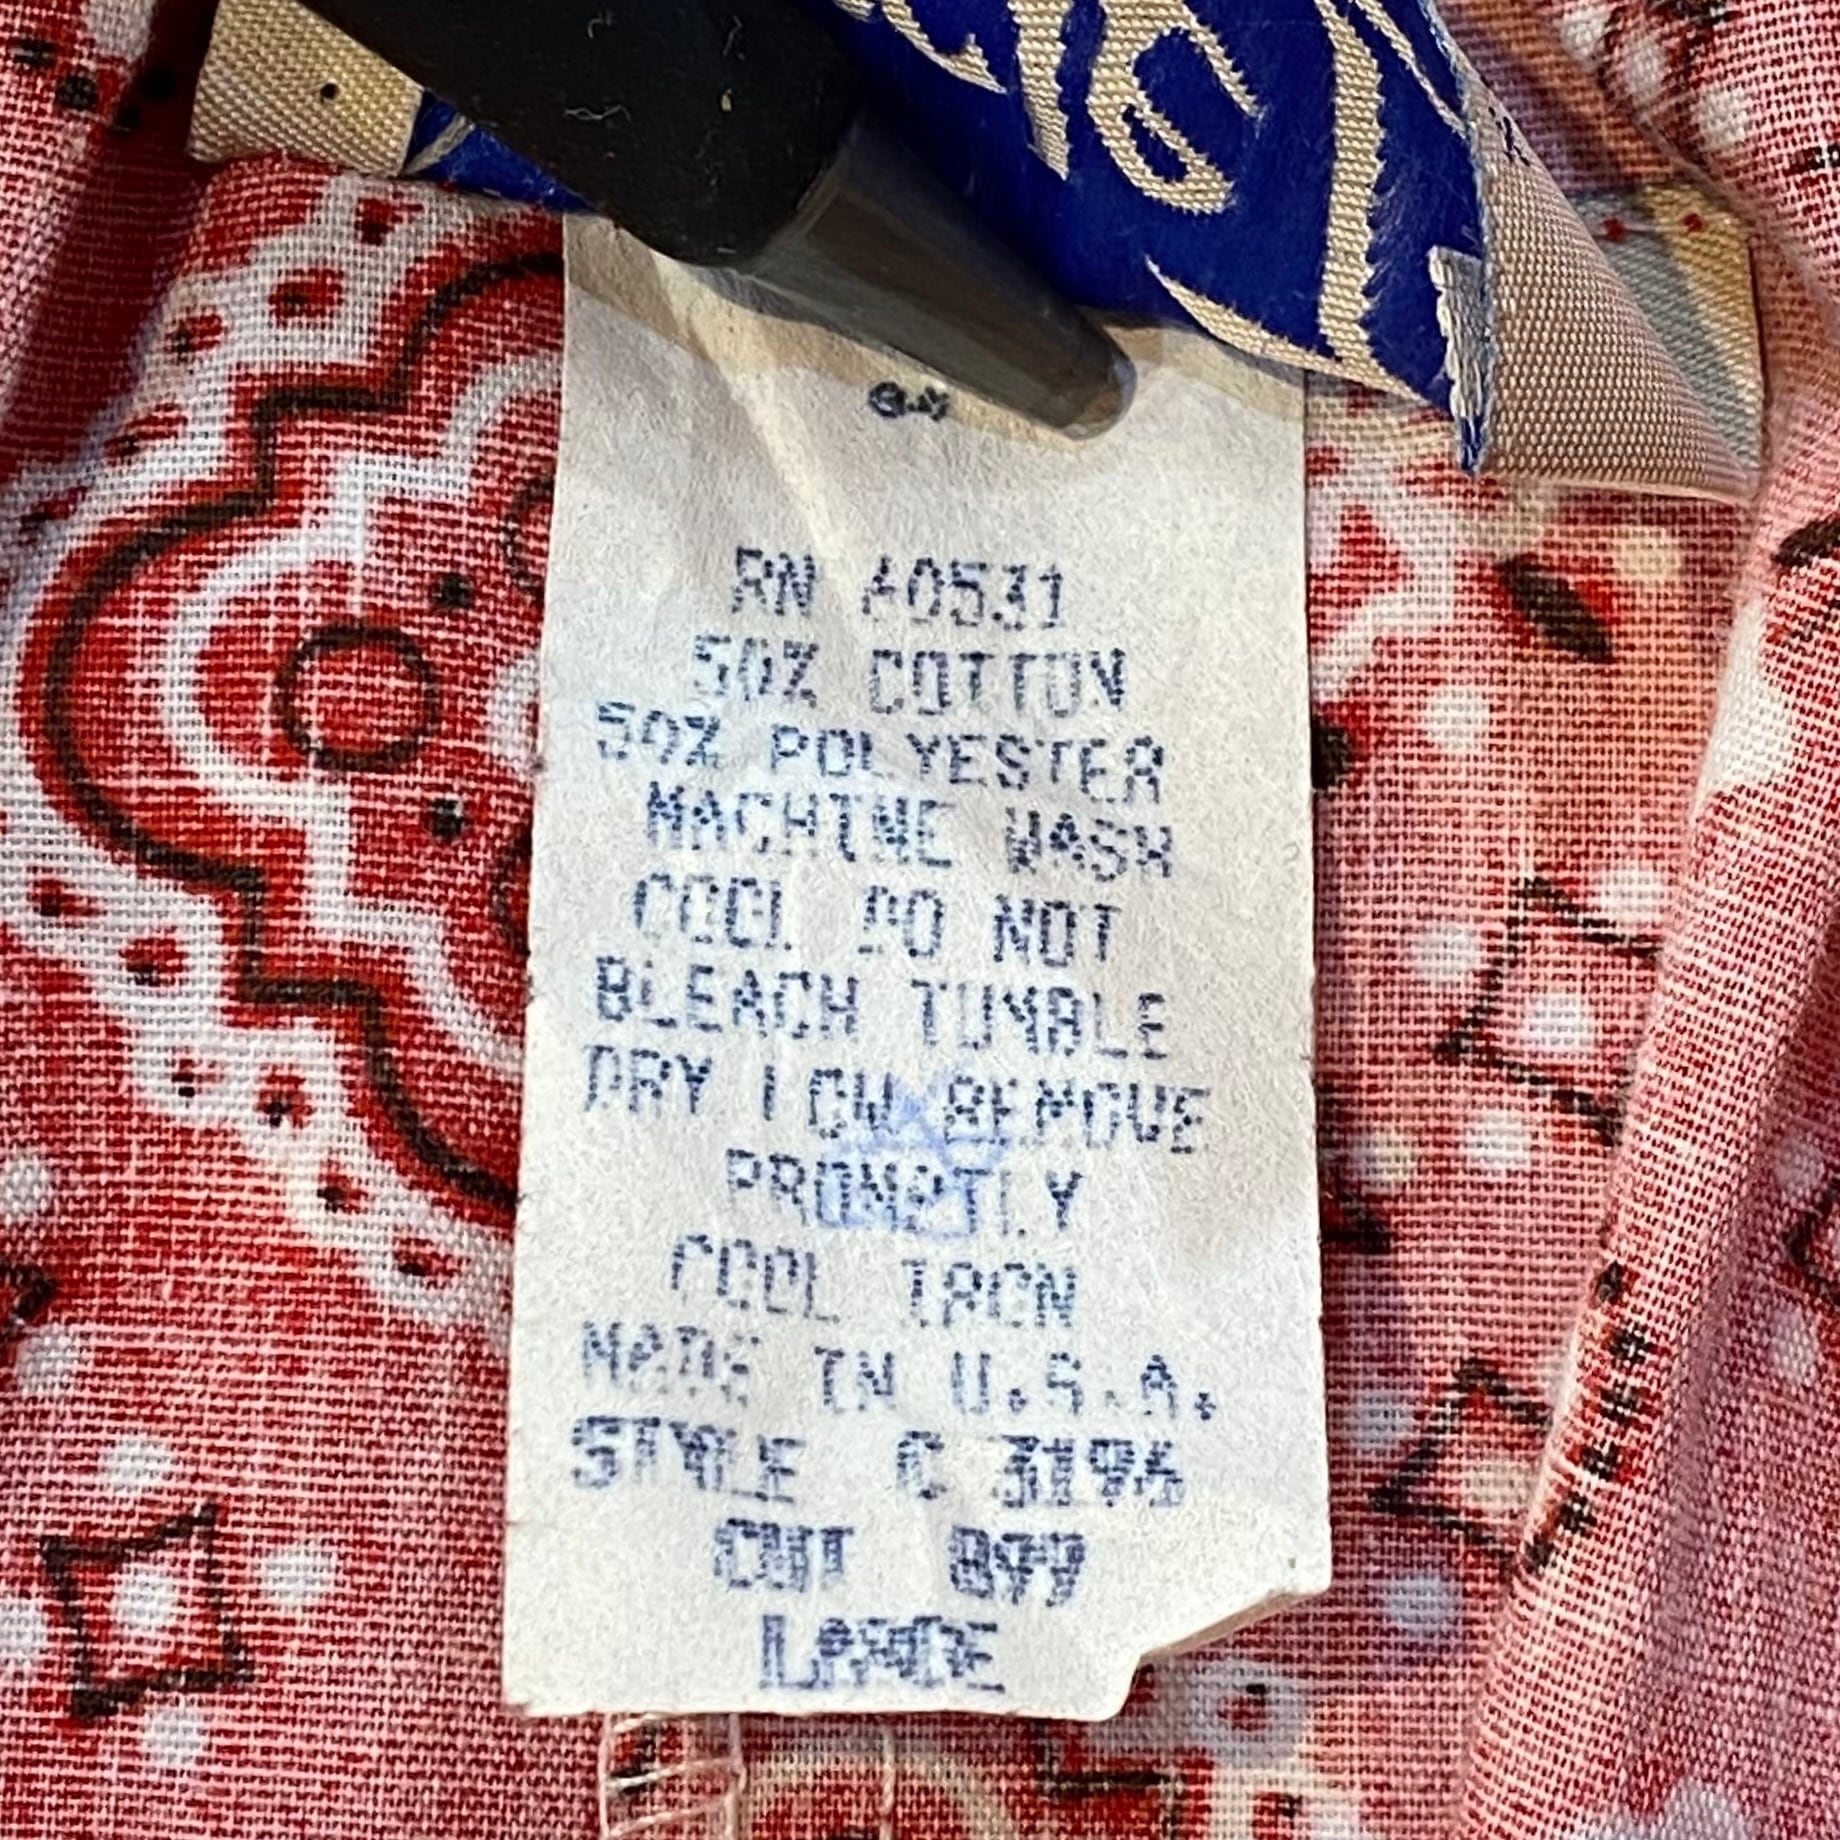 RN 60531
50% COTTON
50% POLYESTER
MACHINE WASH
COOL DO NOT
BLEACH TUMBLE
DRY LOW REMOVE
PROMPTLY
COOL IRON
MADE IN U.S.A.
STYLE C 3196
CUT 899
LARGE